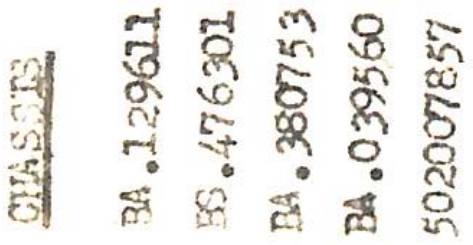 CHASSIS
BA.129611
BS.476301
BA.380753
BA.039560
502007857